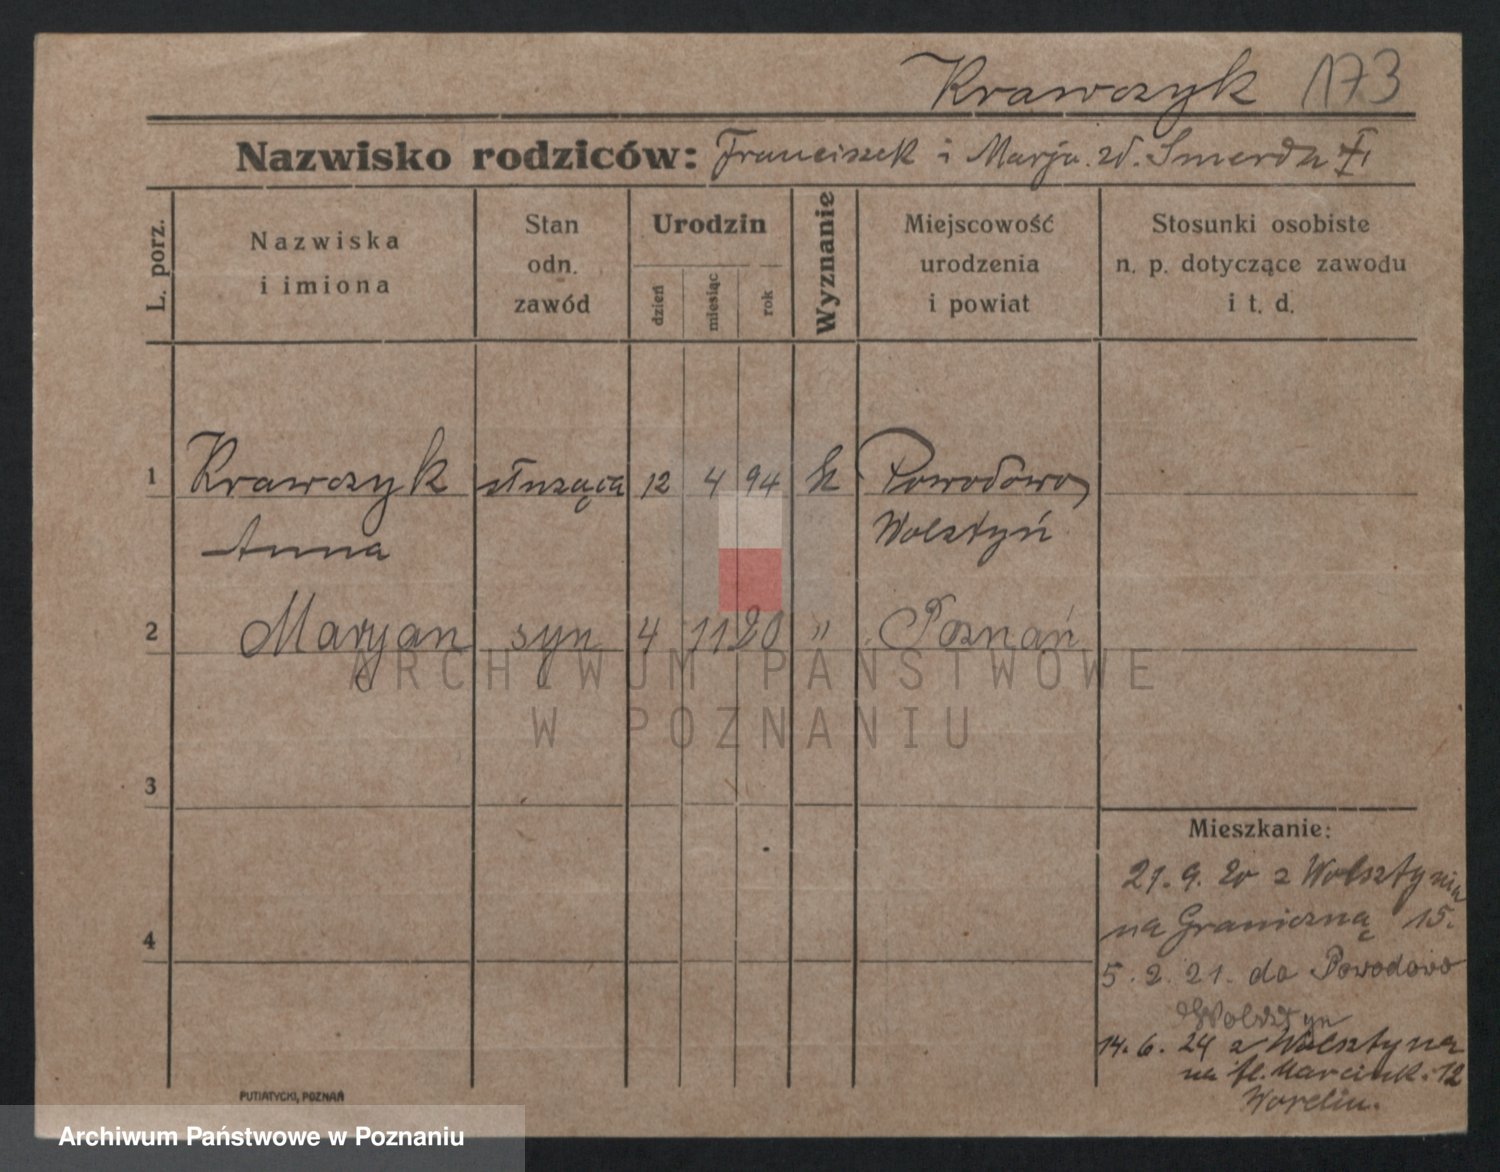 Krawczyk 173
Nazwisko rodziców: Franciszek i Marja zd. Smerda
L. porz.
Nazwiska
i imiona
Stan
odn.
zawód
Urodzin
dzień
miesiąc
rok
Wyznanie
Miejscowość
urodzenia
i powiat
Stosunki osobiste
n. p. dotyczące zawodu
i t. d.
1 Krawczyk służąca 12 4 94 k Powodowo
Anna Wolsztyń
2 Maryan syn 4 11 20 " Poznań
ARCHIWUM PAŃSTWOWE
W POZNANIU
3
Mieszkanie:
21. 9. 20 z Wolsztynia
na Graniczną 15.
4
5. 2. 21. do Powodowo
Wolsztyn
14. 6. 24 z Wolsztyna
na Marcink. 12
PUTIATYCKI, POZNAŃ
Archiwum Państwowe w Poznaniu